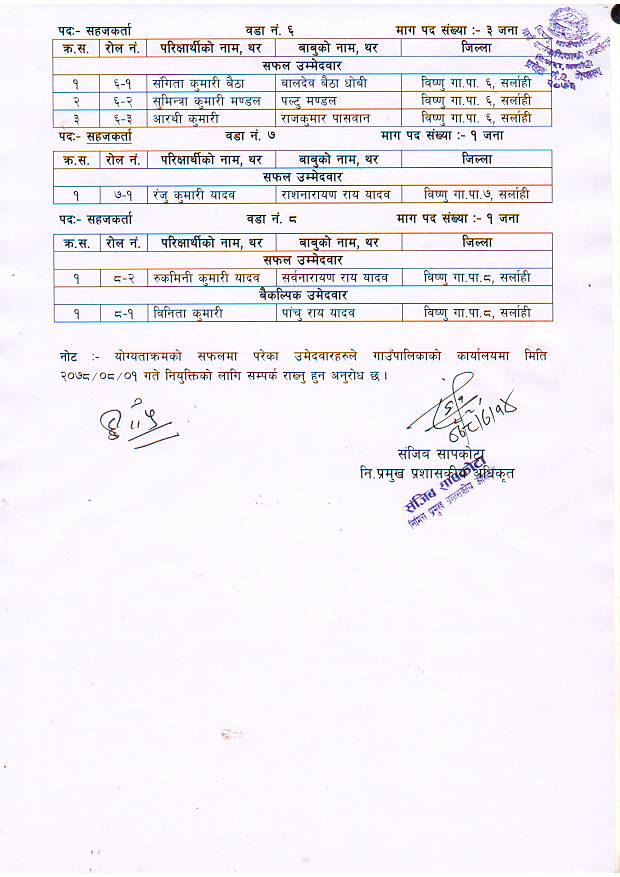 पदः- सहजकर्ता वडा नं. ६ माग पद संख्या :- ३ जना
क्र.स. रोल नं. परिक्षार्थीको नाम, थर बाबुको नाम, थर जिल्ला
सफल उम्मेदवार
१ ६-१ संगिता कुमारी बैठा बालदेव बैठा धोबी विष्णु गा.पा. ६, सर्लाही
२ ६-२ सुमिन्त्रा कुमारी मण्डल पल्टु मण्डल विष्णु गा.पा. ६, सर्लाही
३ ६-३ आरथी कुमारी राजकुमार पासवान विष्णु गा.पा. ६, सर्लाही
पदः- सहजकर्ता वडा नं. ७ माग पद संख्या :- १ जना
क्र.स. रोल नं. परिक्षार्थीको नाम, थर बाबुको नाम, थर जिल्ला
सफल उम्मेदवार
१ ७-१ रंजु कुमारी यादव राशनारायण राय यादव विष्णु गा.पा.७, सर्लाही
पदः- सहजकर्ता वडा नं. ८ माग पद संख्या :- १ जना
क्र.स. रोल नं. परिक्षार्थीको नाम, थर बाबुको नाम, थर जिल्ला
सफल उम्मेदवार
१ ८-२ रुकमिनी कुमारी यादव सर्वनारायण राय यादव विष्णु गा.पा.८, सर्लाही
बैकल्पिक उमेदवार
१ ८-१ विनिता कुमारी पांचु राय यादव विष्णु गा.पा.८, सर्लाही
नोट :- योग्यताक्रमको सफलमा परेका उमेदवारहरुले गाउँपालिकाको कार्यालयमा मिति
२०७८/०८/०१ गते नियुक्तिको लागि सम्पर्क राख्नु हुन अनुरोध छ ।
संजिब सापकोटा
नि.प्रमुख प्रशासकीय अधिकृत
संजिब सापकोटा
निमित्त प्रमुख प्रशासकीय